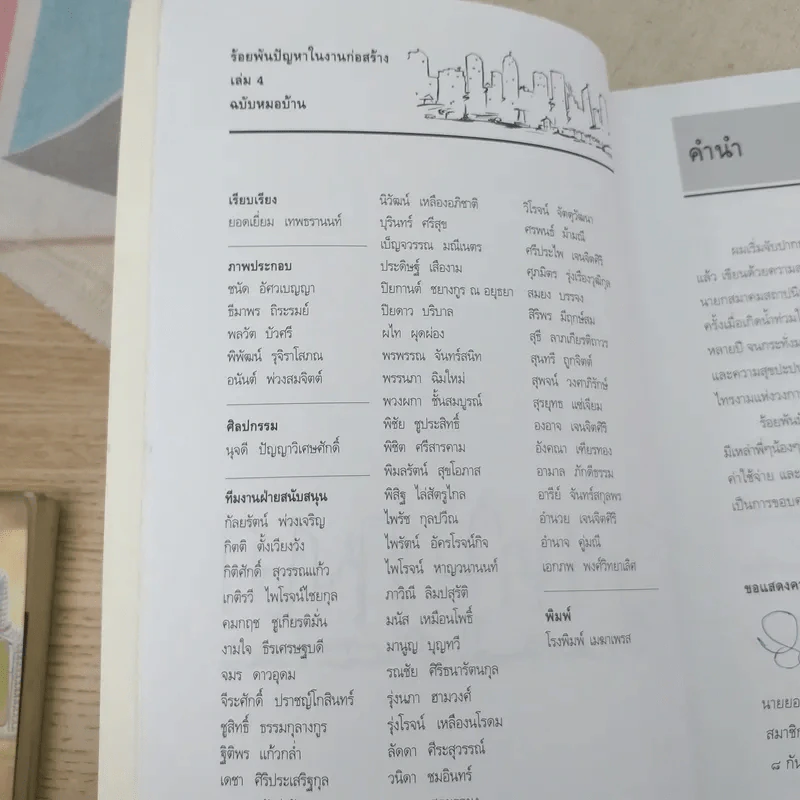 ร้อยพันปัญหาในงานก่อสร้าง
เล่ม 4
ฉบับหมอบ้าน
เรียบเรียง
ยอดเยี่ยม เทพธรานนท์
ภาพประกอบ
ชนัด อัศวเบญญา
ธีมาพร ถิระรมย์
พลวัต บัวศรี
พิพัฒน์ รุจิราโสภณ
อนันต์ พ่วงสมจิตต์
ศิลปกรรม
นุจดี ปัญญาวิเศษศักดิ์
ทีมงานฝ่ายสนับสนุน
กัลยรัตน์ พ่วงเจริญ
กิตติ ตั้งเวียงวัง
กิติศักดิ์ สุวรรณแก้ว
เกติรวี ไพโรจน์ไชยกุล
คมกฤช ชูเกียรติมั่น
งามใจ ธีรเศรษฐบดี
จมร ดาวอุดม
จีระศักดิ์ ปราชญ์โกสินทร์
ชูสิทธิ์ ธรรมกุลางกูร
ฐิติพร แก้วกล่ำ
เดชา ศิริประเสริฐกุล
นิวัฒน์ เหลืองอภิชาติ
บุรินทร์ ศรีสุข
เบ็ญจวรรณ มณีเนตร
ประดิษฐ์ เสืองาม
ปิยกานต์ ชยางกูร ณ อยุธยา
ปิยดาว บริบาล
ผไท ผุดผ่อง
พรพรรณ จันทร์สนิท
พรรนภา ฉิมใหม่
พวงผกา ชั้นสมบูรณ์
พิชัย ชูประสิทธิ์
พิชิต ศรีสารคาม
พิมลรัตน์ สุขโอภาส
พิสิฐ ไล่สัตรูไกล
ไพรัช กุลปวีณ
ไพรัตน์ อัครโรจน์กิจ
ไพโรจน์ หาญวนานนท์
ภาวิณี ลิมปสุรัติ
มนัส เหมือนโพธิ์
มานูญ บุญทวี
รณชัย ศิริธนารัตนกุล
รุ่งนภา ฮามวงศ์
รุ่งโรจน์ เหลืองนโรดม
ลัดดา ศีระสุวรรณ์
วนิดา ชมอินทร์
วิโรจน์ จัตตุวัฒนา
ศรพนธ์ ม้ามณี
ศรีประไพ เจนจิตศิริ
ศุภมิตร รุ่งเรืองวุฒิกุล
สมยง บรรจง
สิริพร มีฤกษ์สม
สุธี ลาภเกียรติถาวร
สุนทรี ถูกจิตต์
สุพจน์ วงศาภิรักษ์
สุรยุทธ แซ่เจียม
องอาจ เจนจิตศิริ
อังคณา เทียรทอง
อามาล ภักดีธรรม
อารีย์ จันทร์สกุลพร
อำนวย เจนจิตศิริ
อำนาจ คู่มณี
เอกภพ พงศ์วิทยาเลิศ
พิมพ์
โรงพิมพ์ เมฆาเพรส
คำนำ
ผมเริ่มจับปากก
แล้ว เขียนด้วยความส
นายกสมาคมสถาปนิ
ครั้งเมื่อเกิดน้ำท่วมให
หลายปี จนกระทั่งม
และความสุขปะป
ไทรงามแห่งวงการ
ร้อยพันปั
มีเหล่าพี่ๆน้องๆ
ค่าใช้จ่าย และ
เป็นการขอบค
ขอแสดงคว
นายยอ
สมาชิก
๘ กัน